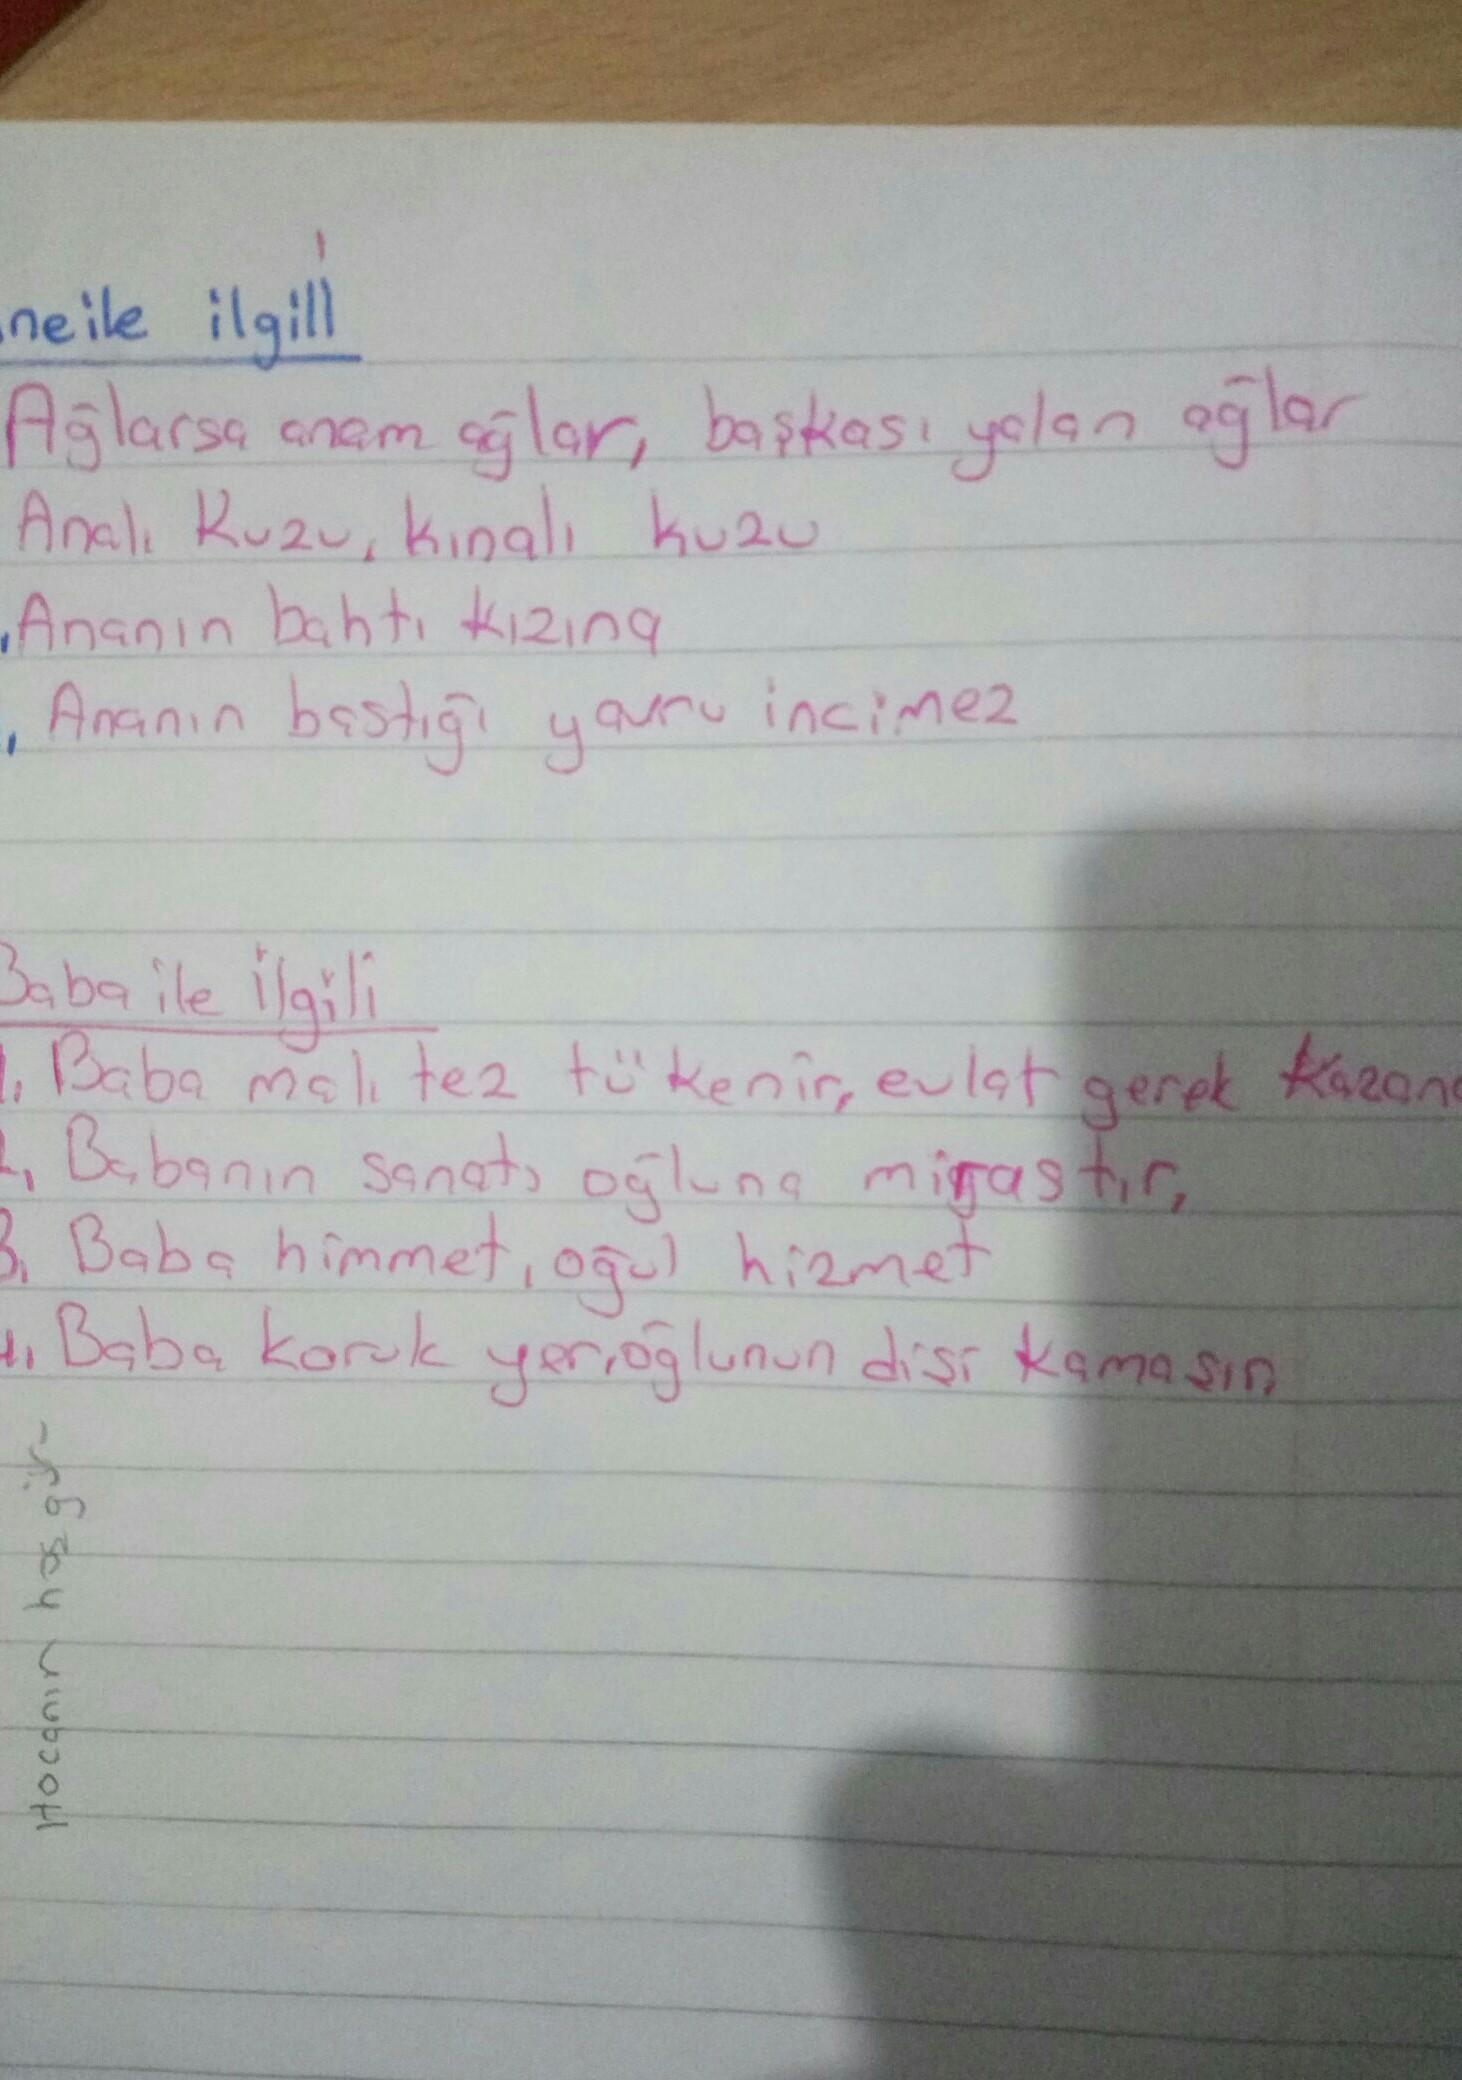 neile ilgili
Ağlarsa anam ağlar, başkası yalan ağlar
Analı Kuzu, kınalı kuzu
Ananın bahtı kızına
Ananın bastığı yavru incimez
Baba ile ilgili
1. Baba malı tez tükenir, evlat gerek kazana
2. Babanın sanatı oğluna mirastır,
3. Baba himmet, oğul hizmet
4. Baba koruk yer, oğlunun disi kamasın
Hocanın